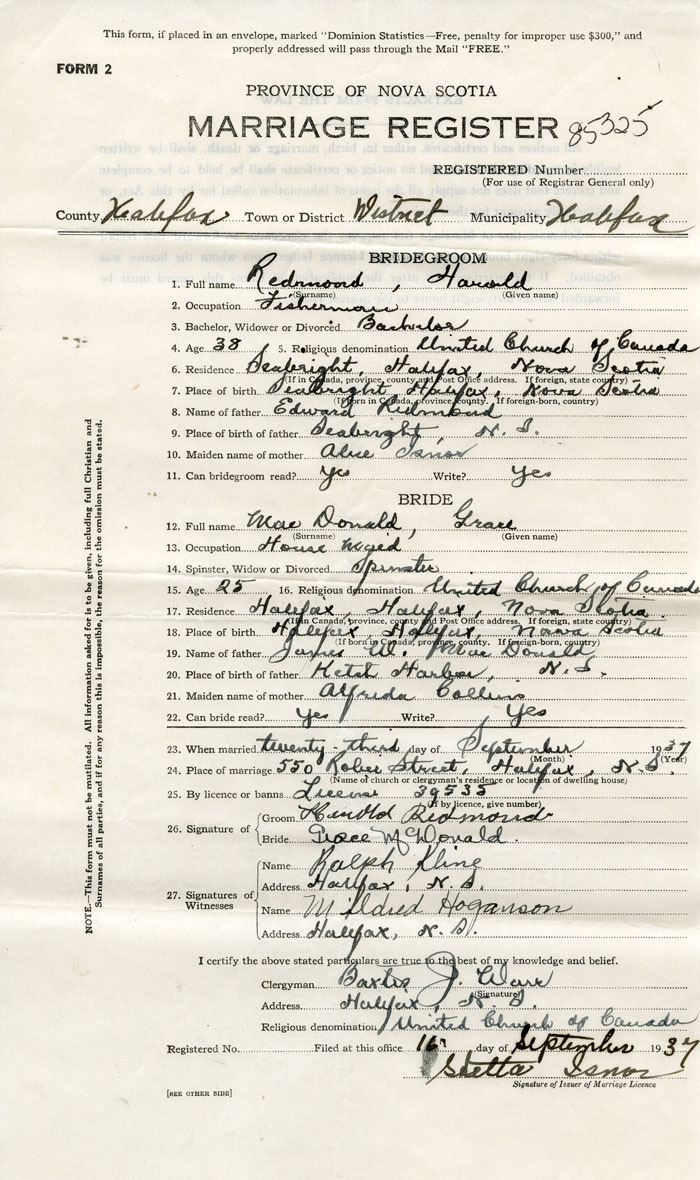 This form, if placed in an envelope, marked "Dominion Statistics—Free, penalty for improper use $300," and
properly addressed will pass through the Mail "FREE."
FORM 2
PROVINCE OF NOVA SCOTIA
MARRIAGE REGISTER 85325
REGISTERED Number
(For use of Registrar General only)
County Halifax Town or District District Municipality Halifax
BRIDEGROOM
1. Full name Redmond, Harold
(Surname) (Given name)
2. Occupation Fisherman
3. Bachelor, Widower or Divorced Bachelor
4. Age 38 5. Religious denomination United Church of Canada
6. Residence Seabright, Halifax, Nova Scotia
(If in Canada, province, county and Post Office address. If foreign, state country)
7. Place of birth Seabright, Halifax, Nova Scotia
(If born in Canada, province, county. If foreign-born, country)
8. Name of father Edward Redmond
9. Place of birth of father Seabright, N. S.
10. Maiden name of mother Alice Isnor
11. Can bridegroom read? Yes Write? Yes
BRIDE
12. Full name Mac Donald, Grace
(Surname) (Given name)
13. Occupation House Maid
14. Spinster, Widow or Divorced Spinster
15. Age 25 16. Religious denomination United Church of Canada
17. Residence Halifax, Halifax, Nova Scotia
(If in Canada, province, county and Post Office address. If foreign, state country)
18. Place of birth Halifax, Halifax, Nova Scotia
(If born in Canada, province, county. If foreign-born, country)
19. Name of father James W. Mac Donald
20. Place of birth of father Ketch Harbor, N. S.
21. Maiden name of mother Alfreda Collins
22. Can bride read? Yes Write? Yes
23. When married twenty-third day of September 1937
(Month) (Year)
24. Place of marriage 550 Robie Street, Halifax, N.S.
(Name of church or clergyman's residence or location of dwelling house)
25. By licence or banns License 39535
(If by licence, give number)
26. Signature of Groom Harold Redmond
Bride Grace McDonald.
27. Signatures of Witnesses
Name Ralph Kline
Address Halifax, N. S.
Name Mildred Hoganson
Address Halifax, N. S.
I certify the above stated particulars are true to the best of my knowledge and belief.
Clergyman J. Ware
(Signature)
Address Halifax, N. S.
Religious denomination United Church of Canada
Registered No. Filed at this office 16 day of September 1937
Stetta Isnor
Signature of Issuer of Marriage Licence
[SEE OTHER SIDE]
NOTE.—This form must not be mutilated. All information asked for is to be given, including full Christian and
Surnames of all parties, and if for any reason this is impossible, the reason for the omission must be stated.